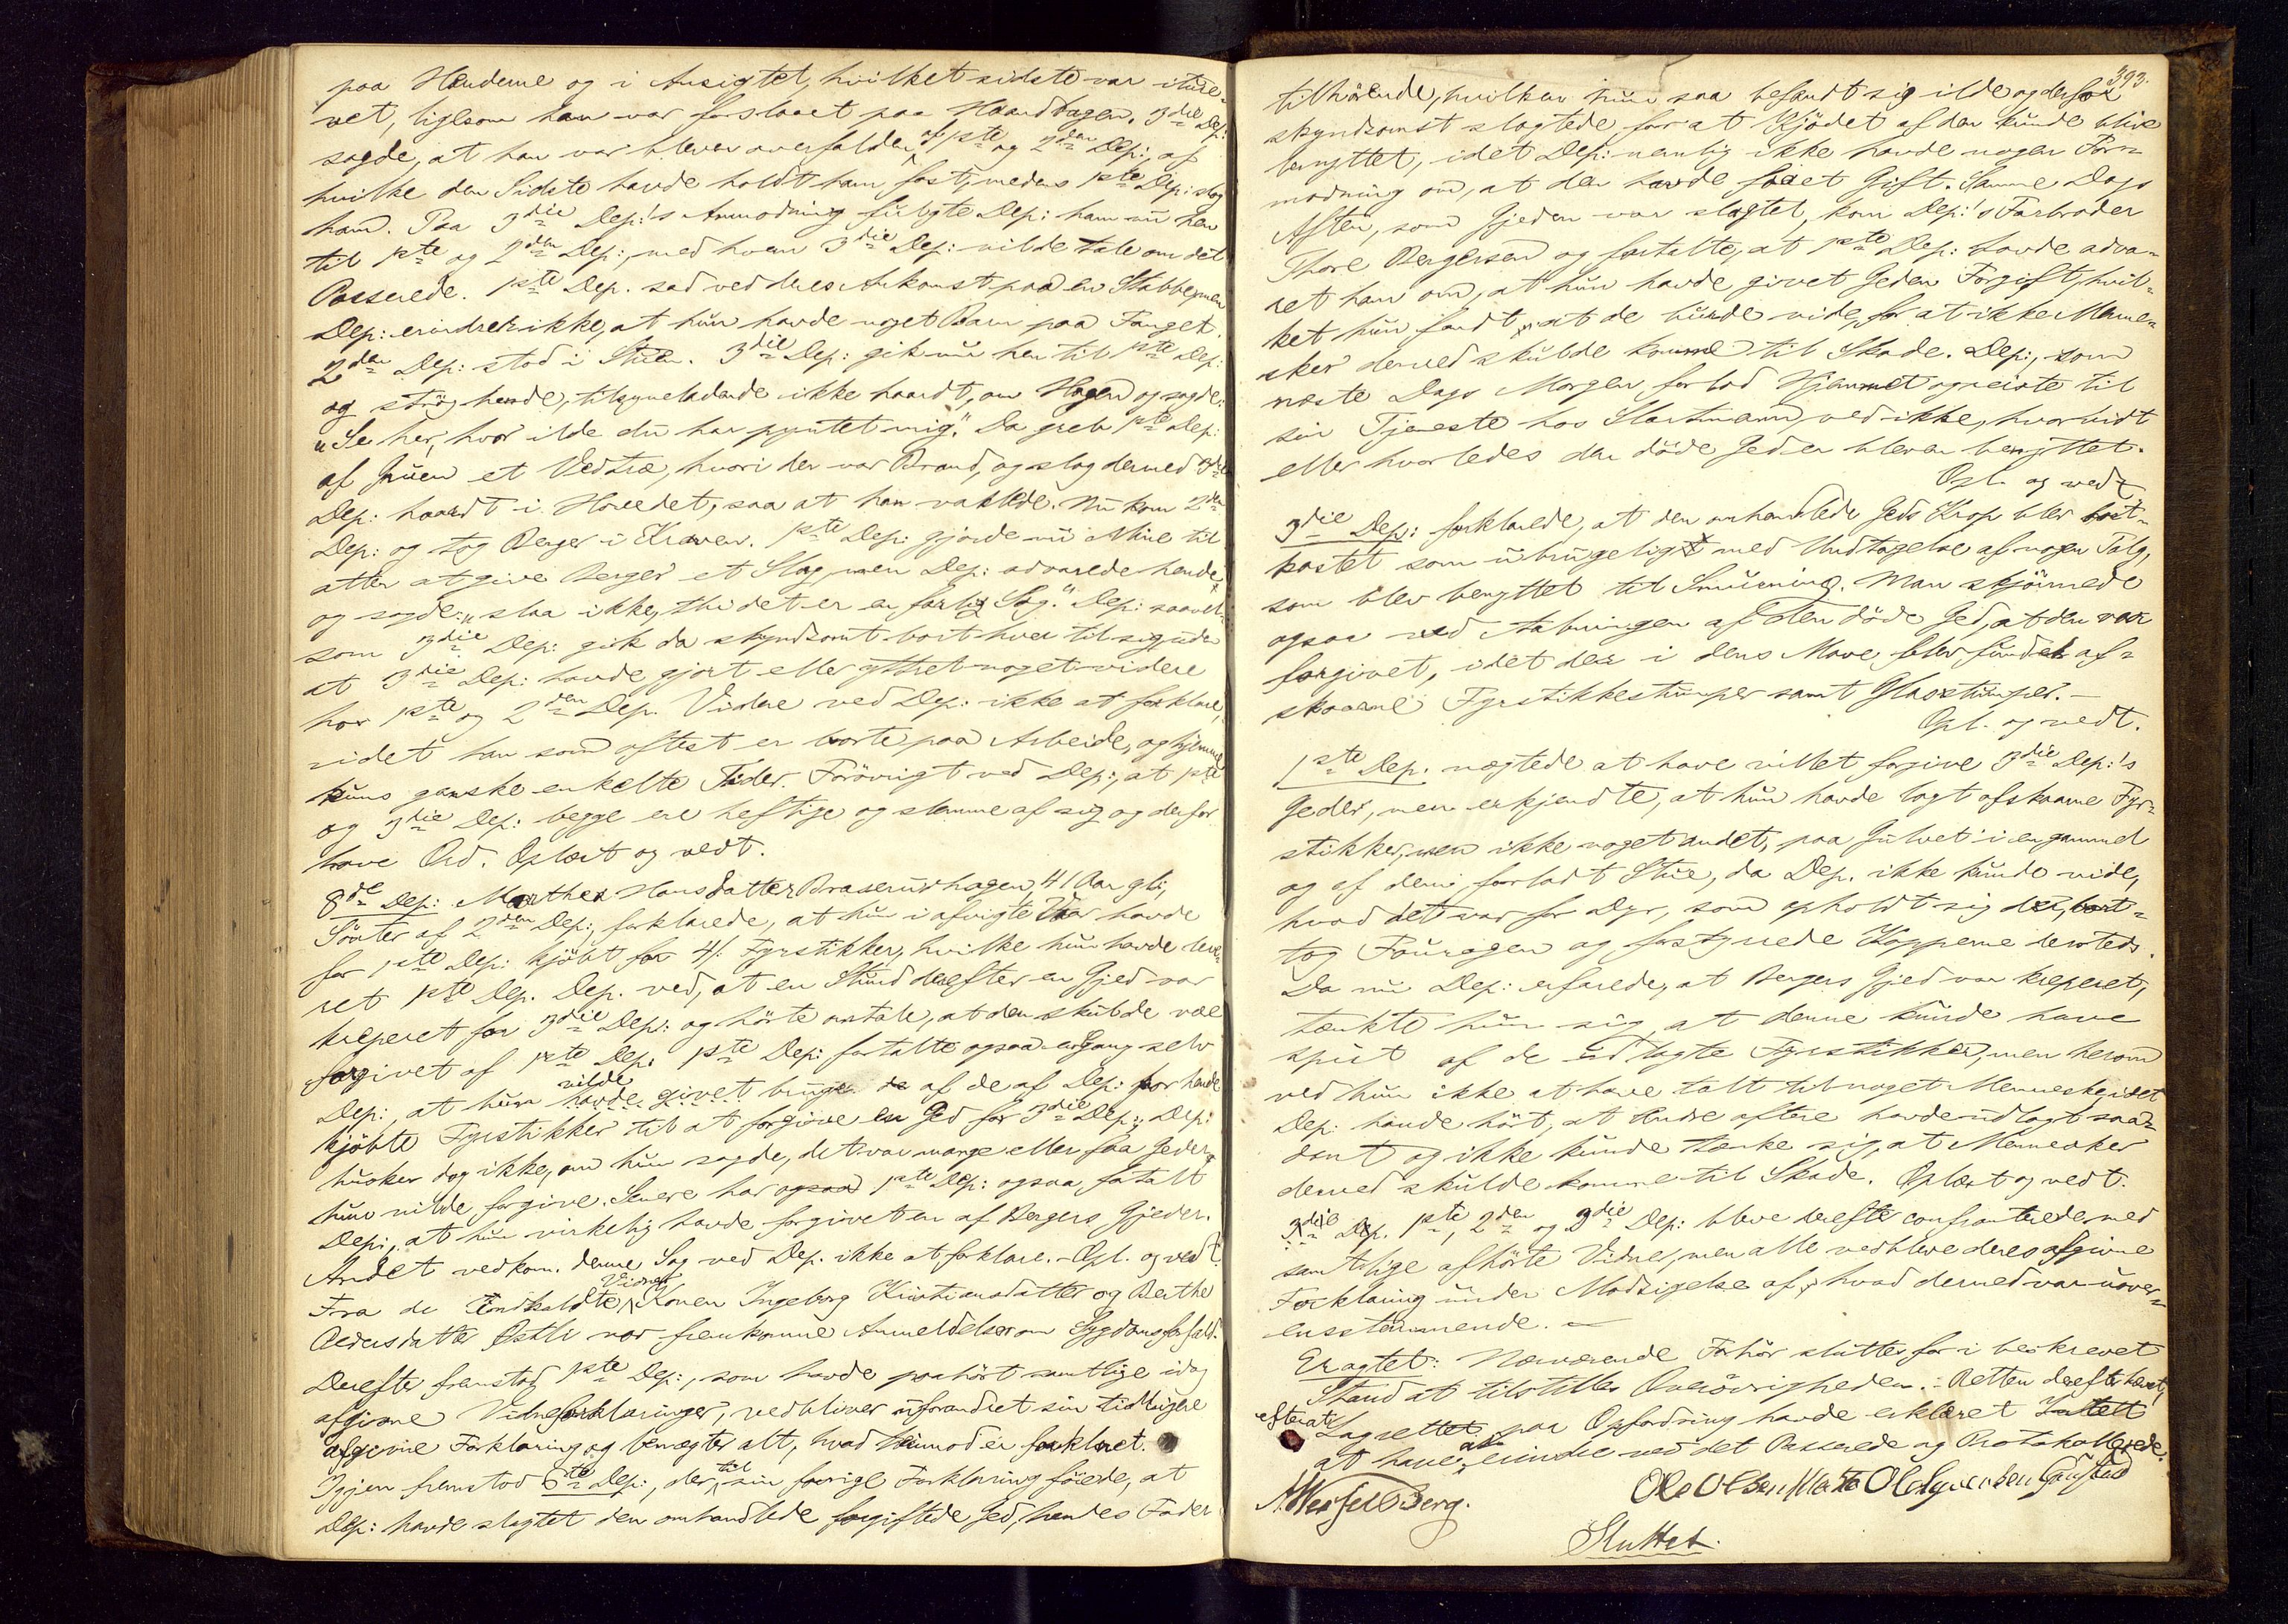 paa Hænderne og i Ansigtet, hvilket sidste var iture-
vet, ligesom han var forslaaet paa Haandbagen. 3die Dep:
sagde, at han var bleven overfalden af 1ste og 2den Dep:, af
hvilke den Sidste havde holdt ham fast, medens 1ste Dep: slog
ham. Paa 3die Dep:'s Anmodning fulgte Dep: ham nu hen
til 1ste og 2den Dep:, med hvem 3die Dep: vilde tale om det
Passerede. 1ste Dep. sad ved deres Ankomst paa en Stabbe, men
Dep: erindrer ikke, at hun havde noget Barn paa Fanget.
2den Dep: stod i Stuen. 3die Dep: gik nu hen til 1ste Dep:
og strøg hende, tilsyneladende ikke haardt, om Hagen og sagde:
"Se her, hvor ilde du har pyntet mig." Da greb 1ste Dep:
af Gruen et Vedtræ, hvori der var Brand, og slog dermed 3die
Dep: haardt i Hovedet, saa at han vaklede. Nu kom 2den
Dep: og tog Berger i Kraven. 1ste Dep: gjorde nu Mine til
atter at give Berger et Slag, men Dep: advarede hende
og sagde: "slaa ikke, thi det er en farlig Sag." Dep: saavel-
som 3die Dep: gik da skyndsomt bort hver til sig, uden
at 3die Dep: havde gjort eller yttret noget videre
hos 1ste og 2den Dep. Videre ved Dep: ikke at forklare,
idet han som oftest er borte paa Arbeide, og hjemme
kuns ganske enkelte Tider. Forøvrigt ved Dep:, at 1ste
og 3die Dep: begge ere heftige og slemme af sig og derfor
have Ord. Oplæst og vedt.
8de Dep: Marthea Hansdatter Braserudhagen, 41 Aar gl:,
Søster af 2den Dep:, forklarede, at hun i afvigte Vaar havde
for 1ste Dep: kjøbt for 4 f. Fyrstikker, hvilke hun havde leve-
ret 1ste Dep. Dep. ved, at en Stund derefter en Gjed var
kreperet for 3die Dep: og hørte omtale, at den skulde være
forgivet af 1ste Dep. 1ste Dep: fortalte ogsaa engang selv
Dep:, at hun havde givet vilde bruge af de af Dep: for hende
kjøbte Fyrstikker til at forgive en Ged for 3die Dep:; Dep:
husker dog ikke, om hun sagde, det var mange eller faa Geder,
hun vilde forgive. Senere har ogsaa 1ste Dep: ogsaa fortalt
Dep:, at hun virkelig havde forgivet en af Bergers Gjeder.
Andet vedkom. denne Sag ved Dep. ikke at forklare. - Opl. og vedt.
Fra de indkaldte Vidner Konen Ingeborg Kristiansdatter og Berthe
Pedersdatter Østli var fremkomne Anmeldelser om Sygdomsforfald.
Derefter fremstod 1ste Dep:, som havde paahørt samtlige idag
afgivne Vidneforklaringer, vedbliver uforandret sin tidligere
afgivne Forklaring og benægter alt, hvad herimod er forklaret.
Igjen fremstod 6te Dep:, der til sin forrige Forklaring føiede, at
Dep: havde slagtet den omhandlede forgiftede Ged, hendes Fader
393.
tilhørende, hvilken hun saa befandt sig ilde og derfor
skyndsomst slagtede for at Kjødet af den kunde blive
benyttet, idet Dep: nemlig ikke havde nogen For-
modning om, at den havde faaet Gift. Samme Dags
Aften, som Gjeden var slagtet, kom Dep:'s Farbroder
Thore Bergersen og fortalte, at 1ste Dep: havde adva-
ret ham om, at hun havde givet Geden Forgift, hvil-
ket hun fandt, at de burde vide, for at ikke Menne-
sker derved skulde komme til Skade. Dep:, som
næste Dags Morgen forlod Hjemmet og reiste til
sin Tjeneste hos Slartmann, ved ikke, hvorvidt
eller hvorledes den døde Ged er bleven benyttet.
Opl. og vedt.
3die Dep: forklarede, at den omhandlede Geds Krop blev bort-
kastet som ubrugelig med Undtagelse af nogen Talg,
som blev benyttet til Smurning. Man skjønnede
ogsaa ved Aabningen af den døde Ged, at den var
forgivet, idet der i dens Mave blev fundet af-
skaarne Fyrstikkestumper samt Glasstumper. -
Opl. og vedt.
1ste Dep. nægtede at have villet forgive 3die Dep:'s
Geder, men erkjendte, at hun havde lagt afskaarne Fyr-
stikker, men ikke noget andet, paa Gulvet i en gammel
og af dem forladt Stue, da Dep. ikke kunde vide,
hvad det var for Dyr, som opholdt sig der, bort-
tog Fouragen og forstyrrede Kopperne dersteds.
Da nu Dep: erfarede, at Bergers Gjed var kreperet,
tænkte hun sig, at denne kunde have
spist af de udlagte Fyrstikker, men herom
ved hun ikke at have talt til noget Menneske, idet
Dep: havde hørt, at Andre oftere havde udlagt saa-
dant og ikke kunde tænke sig, at Mennesker
derved skulde komme til Skade. Oplæst og vedt.
3die Dep. 1ste, 2den og 3die Dep: bleve derefter confronterede med
samtlige afhørte Vidner, men alle vedbleve deres afgivne
Forklaring under Modsigelse af, hvad dermed var uover-
ensstemmende. -
Eragtet: Nærværende Forhør slutter for i beskrevet
Stand at tilstilles Overøvrigheden. - Retten derefter hævet,
efterat Lagrettet paa Opfordring havde erklæret Intet
at have at erindre ved det Passerede og Protokollerede.
A Wessel Berg.
Ole Olsen
Sluttet.